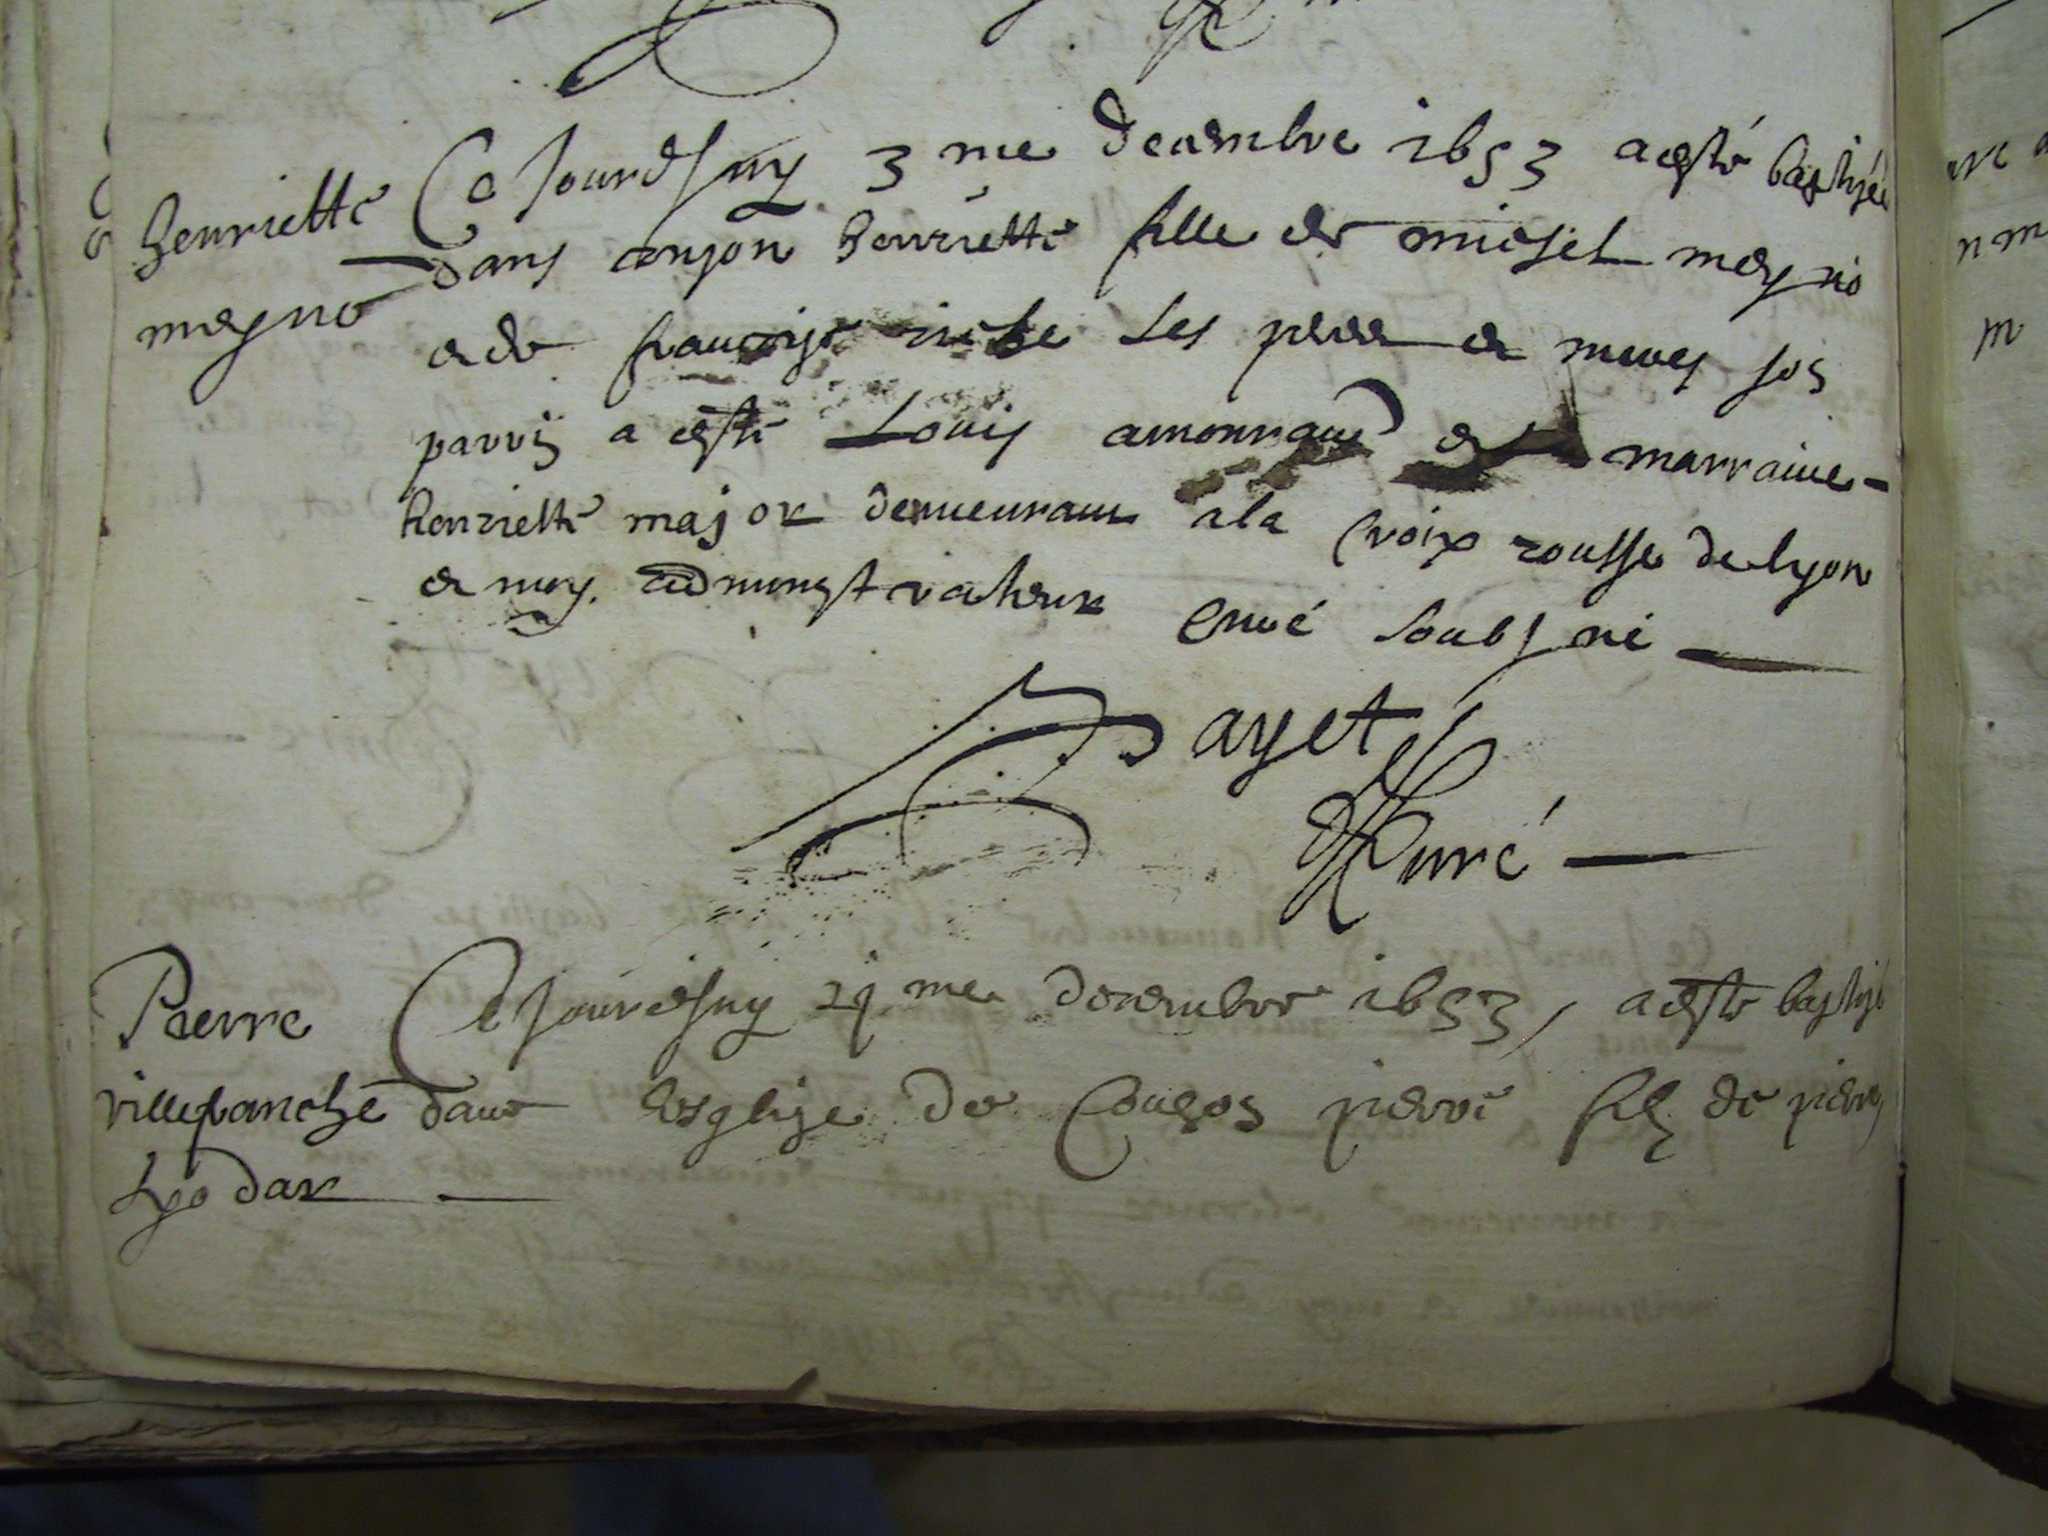 henriette
meyno
Ce Jourdhuy 3 me decembre 1653 a esté baptisée
dans conzon henriette fille de michel meyno
et de francoise les pere et mere son
parrin a esté Louis amonraud et marraine
henriette major demeurant a la Croix rousse de lyon
et moy administrateur Curé soubsné
Bayet
Curé
Pierre
villefranche
Lyodar
Ce Jourdhuy 21 me decembre 1653, a esté baptisé
dans lesglise de Couzon pierre filz de pierre